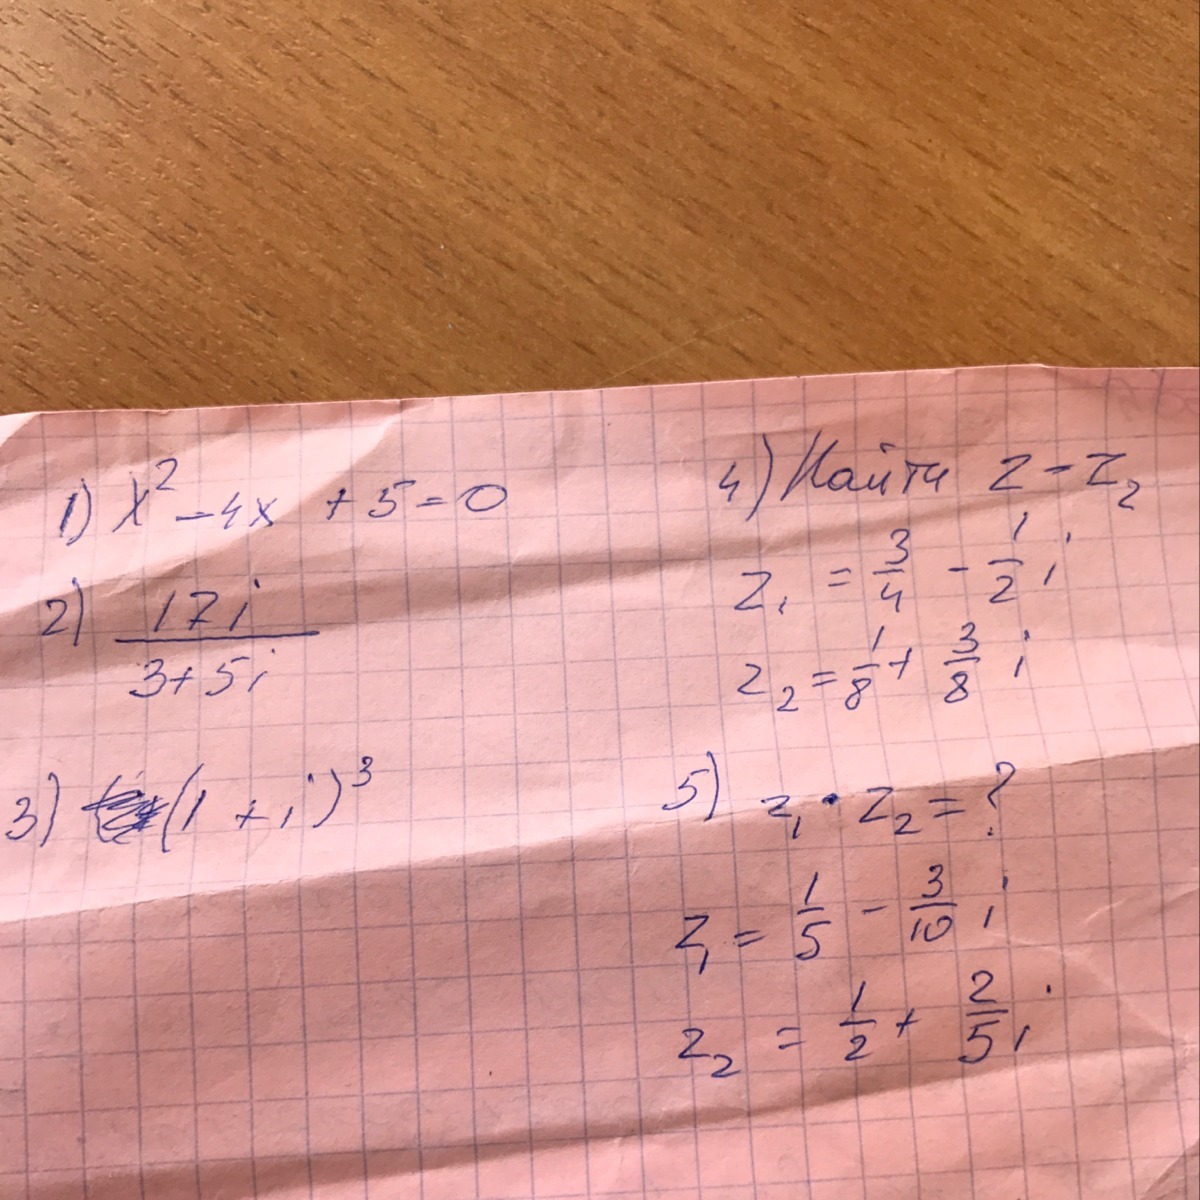 1) x² - 4x + 5 = 0
2) 17i / 3 + 5i
3) (1 + i)³
4) Найти z - z₂
z₁ = 3/4 - 1/2 i
z₂ = 1/8 + 3/8 i
5) z₁ · z₂ = ?
z₁ = 1/5 - 3/10 i
z₂ = 1/2 + 2/5 i